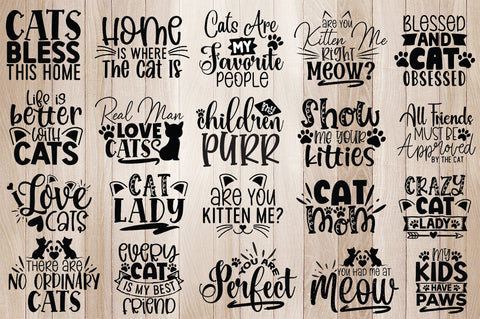 CATS
BLESS
THIS HOME
HOME
IS WHERE
THE CAT IS
Cats Are
MY
Favorite
PEOPLE
ARE YOU
Kitten Me
RIGHT
MEOW?
BLESSED
AND
CAT
OBSESSED
Life is
better
with
CATS
Real Man
LOVE
CATS
MY
children
PURR
Show
ME YOUR
kitties
All Friends
MUST BE
Approved
BY THE CAT
I Love
cats
CAT
LADY
ARE YOU
KITTEN ME?
CAT
mom
CRAZY
CAT
LADY
THERE ARE
NO ORDINARY
CATS
every
CAT
IS MY BEST
friend
YOU ARE
Perfect
YOU HAD ME AT
Meow
MY
KIDS
HAVE
PAWS